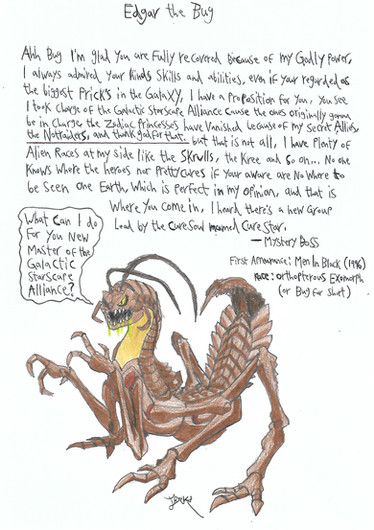 Edgar the Bug
Ahh Bug I'm glad you are Fully recovered because of my Godly power,
I always admired your Kinds Skills and abilities, even if your regarded as
the biggest Prick's in the Galaxy, I have a Proposition for you, you see
I took Charge of the Galactic Starscape Alliance Cause the ones originally gonna
be in Charge the Zodiac Princesses have Vanished because of my Secret Allies,
the Notraiders, and thank god for that. but that is not all, I have Plenty of
Alien Races at my side like the Skrulls, the Kree and so on... No one
Knows Where the heroes nor Pretty Cures if your aware are No where to
be seen one Earth, Which is perfect in my opinion, and that is
Where you come in, I heard there's a new Group
Lead by the Cure Soul named Cure Star.
— Mystery Boss
First Appearance: Men In Black (1996)
race: orthopterous Exomorph
(or Bug for short)
What Can I do
For You New
Master of the
Galactic
Starscape
Alliance?